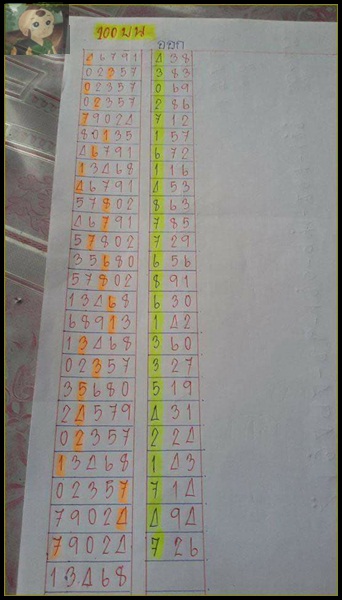 100 บน
ออก
46791 438
02357 383
02357 069
02357 286
79024 712
80135 157
46791 672
13468 116
46791 453
57802 863
46791 785
57802 729
35680 656
57802 891
13468 630
68913 142
13468 360
02357 327
35680 519
24579 431
02357 224
13468 143
02357 714
79024 494
79024 726
13468